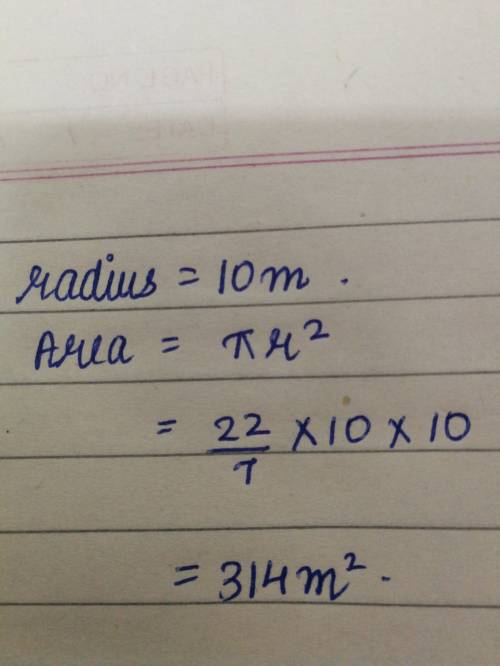 PAGE NO
DATE
radius = 10m.
Area = πr²
= 22/7 × 10 × 10
= 314m².